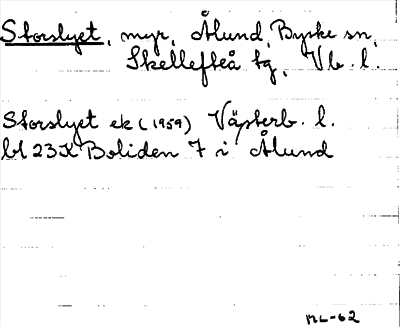 Storslyet, myr, Ålund, Byske sn,
Skellefteå tg, Vb. l.
Storslyet ek (1959) Västerb. l.
bl 23K Boliden 7 i Ålund
ML-62